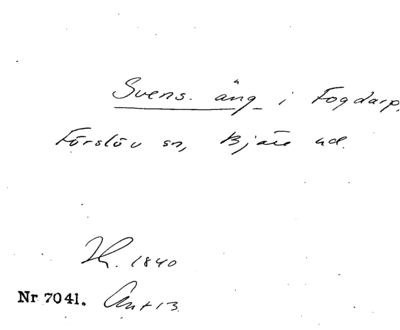 Svens. äng i Fogdarp,
Förslöv sn, Bjäre hd.
H. 1840
Nr 7041. Ant 13